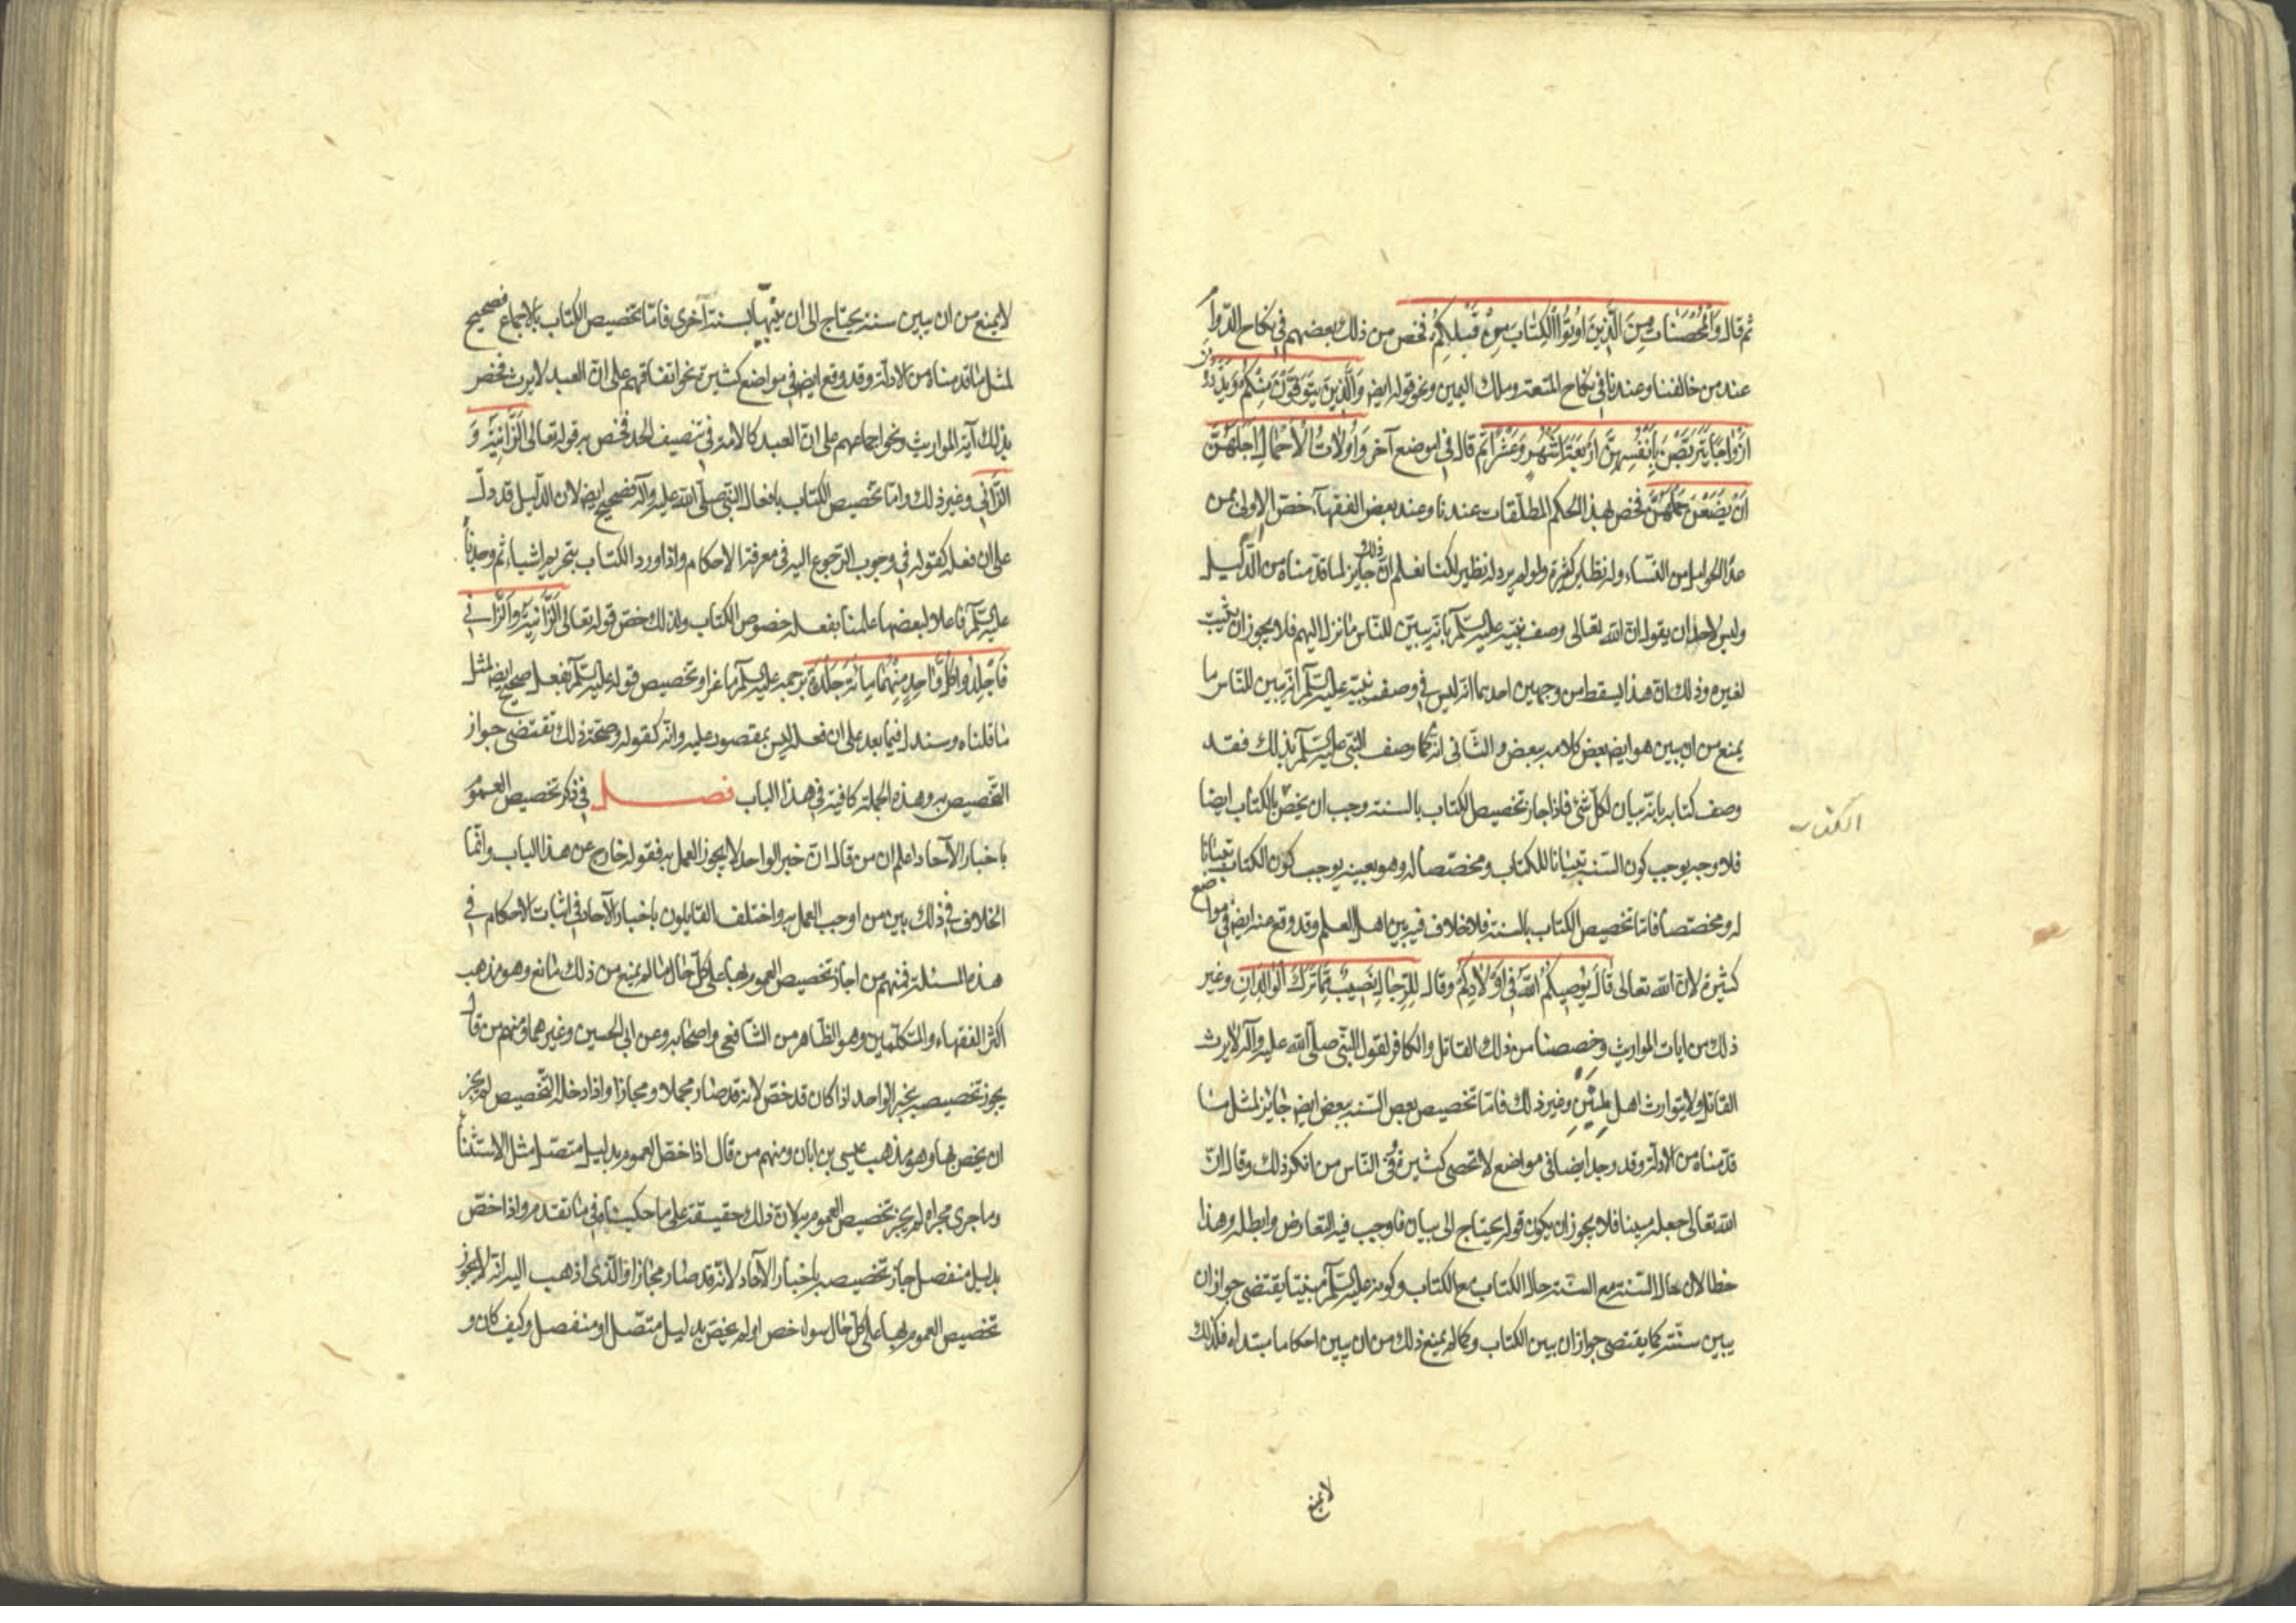 ثم قال وَالْمُحْصَنَاتُ مِنَ الَّذِينَ اُوتُوا الْكِتَابَ مِنْ قَبْلِكُمْ فخص من ذلك بعضهم في نكاح الدوام
عند من خالفنا وعندنا في نكاح المتعة وملك اليمين ونحو قوله ايض وَالَّذِينَ يُتَوَفَّوْنَ مِنْكُمْ وَيَذَرُونَ
اَزْوَاجًا يَتَرَبَّصْنَ بِاَنْفُسِهِنَّ اَرْبَعَةَ اَشْهُرٍ وَعَشْرًا ثم قال في موضع آخر وَاُولَاتُ الْاَحْمَالِ اَجَلُهُنَّ
اَنْ يَضَعْنَ حَمْلَهُنَّ فخص بهذا الحكم المطلقات عندنا وعند بعض الفقهاء خص الاولى بمن
عدا الحوامل من النساء وله نظاير كثيرة ولو لم يرد له نظير لكنا نعلم ان ذلك جايز لما قدمناه من الدليل
وليس لاحد ان يقول ان الله تعالى وصف نبيه عليه السلم بانه يبين للناس ما نزل اليهم فلا يجوز ان يثبت
لغيره وذلك ان هذا يسقط من وجهين احدهما انه ليس في وصف نبيه عليه السلم انه يبين للناس ما
يمنع من ان يبين هو ايض بعض كلامه ببعض والثاني انه كما وصف النبي عليه السلم بذلك فقد
وصف كتابه بانه بيان لكل شئ فاذا جاز تخصيص الكتاب بالسنة وجب ان يخص بالكتاب ايضا
الكتاب
فلا وجه يوجب كون السنة تبيانا للكتاب ومخصصا له وهو بعينه يوجب كون الكتاب تبيانا
له ومخصصا فاما تخصيص الكتاب بالسنة فلا خلاف فيه بين اهل العلم وقد وقع منه ايض في مواضع
كثيرة لان الله تعالى قال يُوصِيكُمُ اللّٰهُ فِي اَوْلَادِكُمْ وقال لِلرِّجَالِ نَصِيبٌ مِمَّا تَرَكَ الْوَالِدَانِ وغير
ذلك من ايات المواريث وخصصنا من ذلك القاتل والكافر لقول النبي صلى الله عليه وآله لا يرث
القاتل ولا يتوارث اهل ملتين وغير ذلك فاما تخصيص بعض السنة ببعض ايض جائز لمثل ما
قدمناه من الادلة وقد وجد ايضا في مواضع لا تحصى كثيرة وفي الناس من انكر ذلك وقال ان
الله تعالى جعله مبينا فلا يجوز ان يكون قوله يحتاج الى بيان فاوجب فيه التعارض وابطله وهذا
خطا لان حال السنة مع السنة حال الكتاب مع الكتاب وكونه عليه السلم مبينا يقتضى جواز ان
يبين سنته كما يقتضى جواز ان يبين الكتاب وكما لم يمنع ذلك من ان يبين احكاما مبتداه فكذلك
لا يمنع
لا يمنع من ان يبين سنة يحتاج الى ان يبينها بسنة اخرى فاما تخصيص الكتاب بالاجماع فصحيح
لمثل ما قدمناه من الادلة وقد وقع ايض في مواضع كثيرة نحو اتفاقهم على ان العبد لا يرث فخص
بذلك آية المواريث ونحو اجماعهم على ان العبد كالامة في تنصيف الحد فخص به قوله تعالى الزَّانِيَةُ وَ
الزَّانِي وغير ذلك واما تخصيص الكتاب بافعال النبي صلى الله عليه وآله فصحيح ايض لان الدليل قد دل
على ان فعله كقوله في وجوب الرجوع اليه في معرفة الاحكام واذا ورد الكتاب بتحريم اشياء ثم وجدناه
عليه السلم فاعلا لبعضها علمنا بفعله خصوص الكتاب ولذلك خص قوله تعالى الزَّانِيَةُ وَالزَّانِي
فَاجْلِدُوا كُلَّ وَاحِدٍ مِنْهُمَا مِائَةَ جَلْدَةٍ برجمه عليه السلم ماعزا وتخصيص قوله عليه السلم بفعله صحيح ايض لمثل
ما قلناه وسندل فيما بعد على ان فعله ليس بمقصور عليه وانه كقوله وصحة ذلك تقتضى جواز
التخصيص به وهذه الجملة كافية في هذا الباب فصل في ذكر تخصيص العموم
باخبار الآحاد اعلم ان من قال ان خبر الواحد لا يجوز العمل به فقوله خارج عن هذا الباب وانما
الخلاف في ذلك بين من اوجب العمل به واختلف القايلون باخبار الآحاد في اثبات الاحكام في
هذه المسئلة فمنهم من اجاز تخصيص العموم بها على كل حال ما لم يمنع من ذلك مانع وهو مذهب
اكثر الفقهاء والمتكلمين وهو الظاهر من الشافعي واصحابه وعن ابي الحسين وغيرهما ومنهم من قال
يجوز تخصيصه بخبر الواحد اذا كان قد خص لانه قد صار مجملا ومجازا واذا دخله التخصيص لم يجز
ان يخص بها وهو مذهب عيسى بن ابان ومنهم من قال اذا خص العموم بدليل متصل مثل الاستثناء
وما جرى مجراه لم يجز تخصيص العموم به لان ذلك حقيقة على ما حكيناه في ما تقدم واذا خص
بدليل منفصل جاز تخصيصه باخبار الآحاد لانه قد صار مجازا والذى اذهب اليه انه لا يجوز
تخصيص العموم بها على كل حال سواء خص او لم يخص بدليل متصل او منفصل وكيف كان و